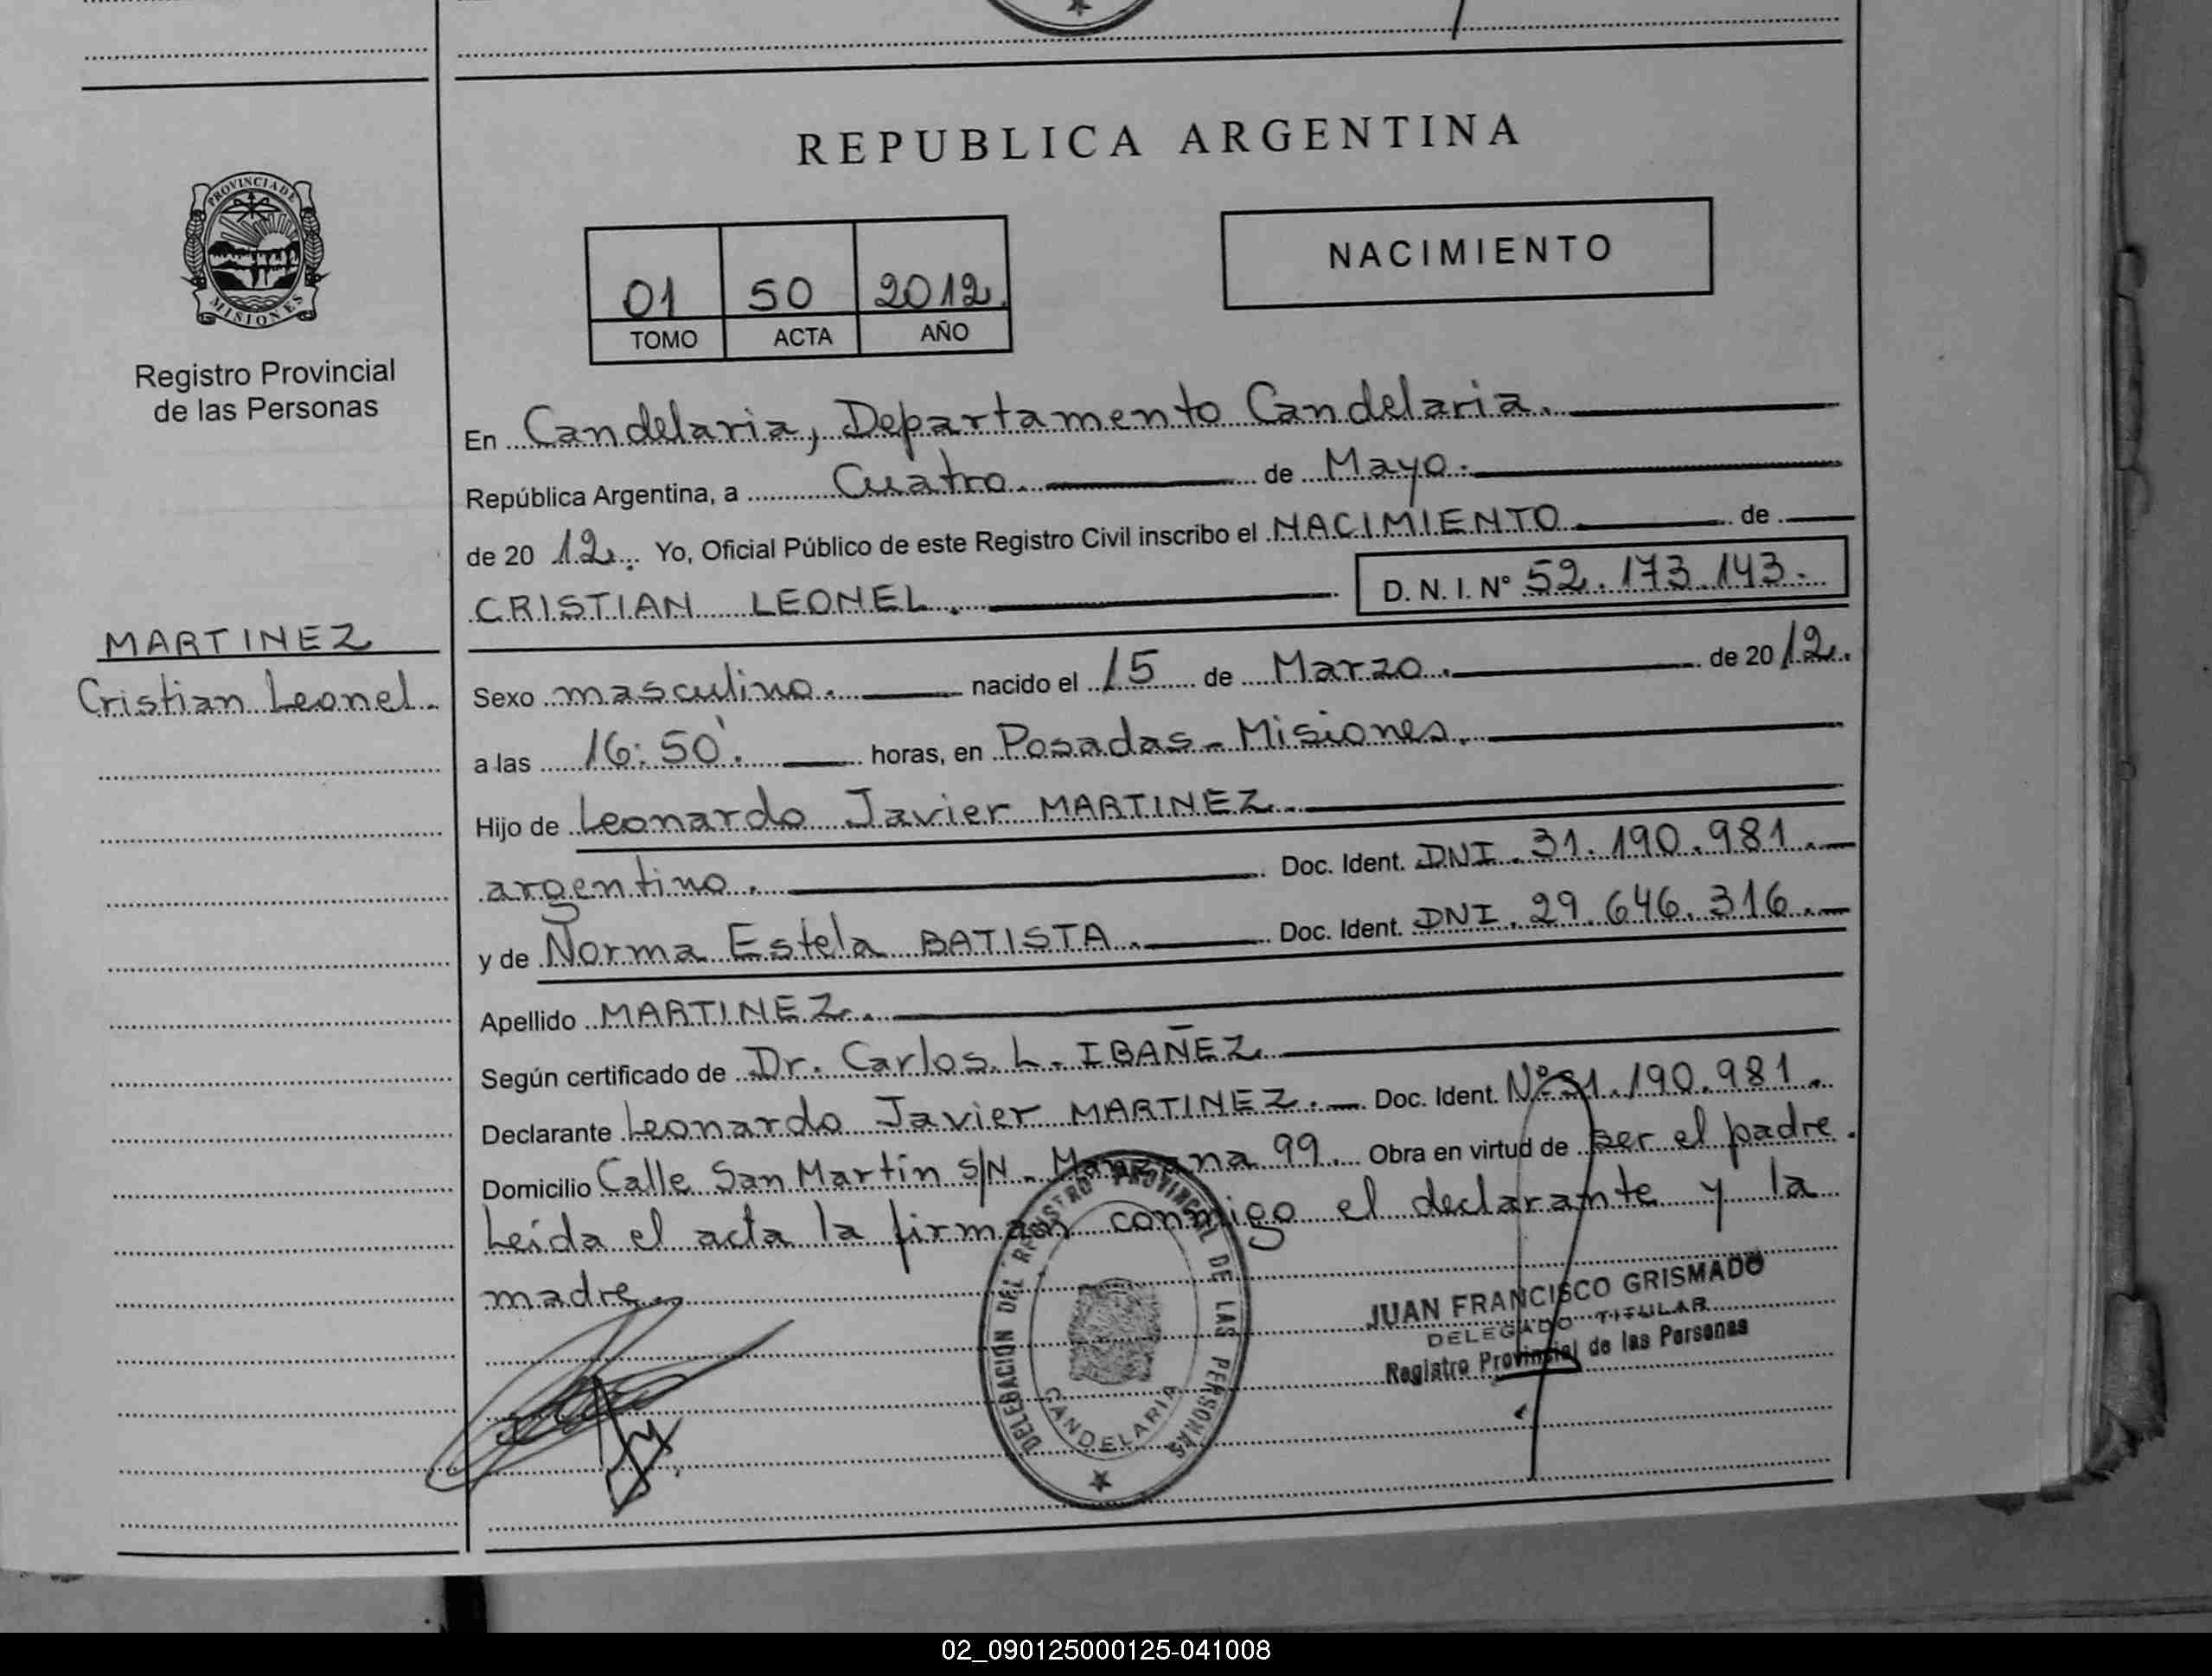 REPUBLICA ARGENTINA
PROVINCIA DE
MISIONES
Registro Provincial
de las Personas
01 50 2012
TOMO ACTA AÑO
NACIMIENTO
En Candelaria, Departamento Candelaria.
República Argentina, a Cuatro. de Mayo.
de 20 12. Yo, Oficial Público de este Registro Civil inscribo el NACIMIENTO de
CRISTIAN LEONEL. D. N. I. N° 52.173.143.
MARTINEZ
Cristian Leonel.
Sexo masculino. nacido el 15 de Marzo. de 20 12.
a las 16:50'. horas, en Posadas - Misiones.
Hijo de Leonardo Javier MARTINEZ.
argentino. Doc. Ident. DNI. 31.190.981.
y de Norma Estela BATISTA. Doc. Ident. DNI. 29.646.316.
Apellido MARTINEZ.
Según certificado de Dr. Carlos L. IBAÑEZ.
Declarante Leonardo Javier MARTINEZ. Doc. Ident. N° 31.190.981.
Domicilio Calle San Martín S/N - Manzana 99. Obra en virtud de ser el padre.
Leída el acta la firman conmigo el declarante y la
madre.
DELEGACION DEL REGISTRO PROVINCIAL DE LAS PERSONAS
CANDELARIA
JUAN FRANCISCO GRISMADO
DELEGADO TITULAR
Registro Provincial de las Personas
02_090125000125-041008